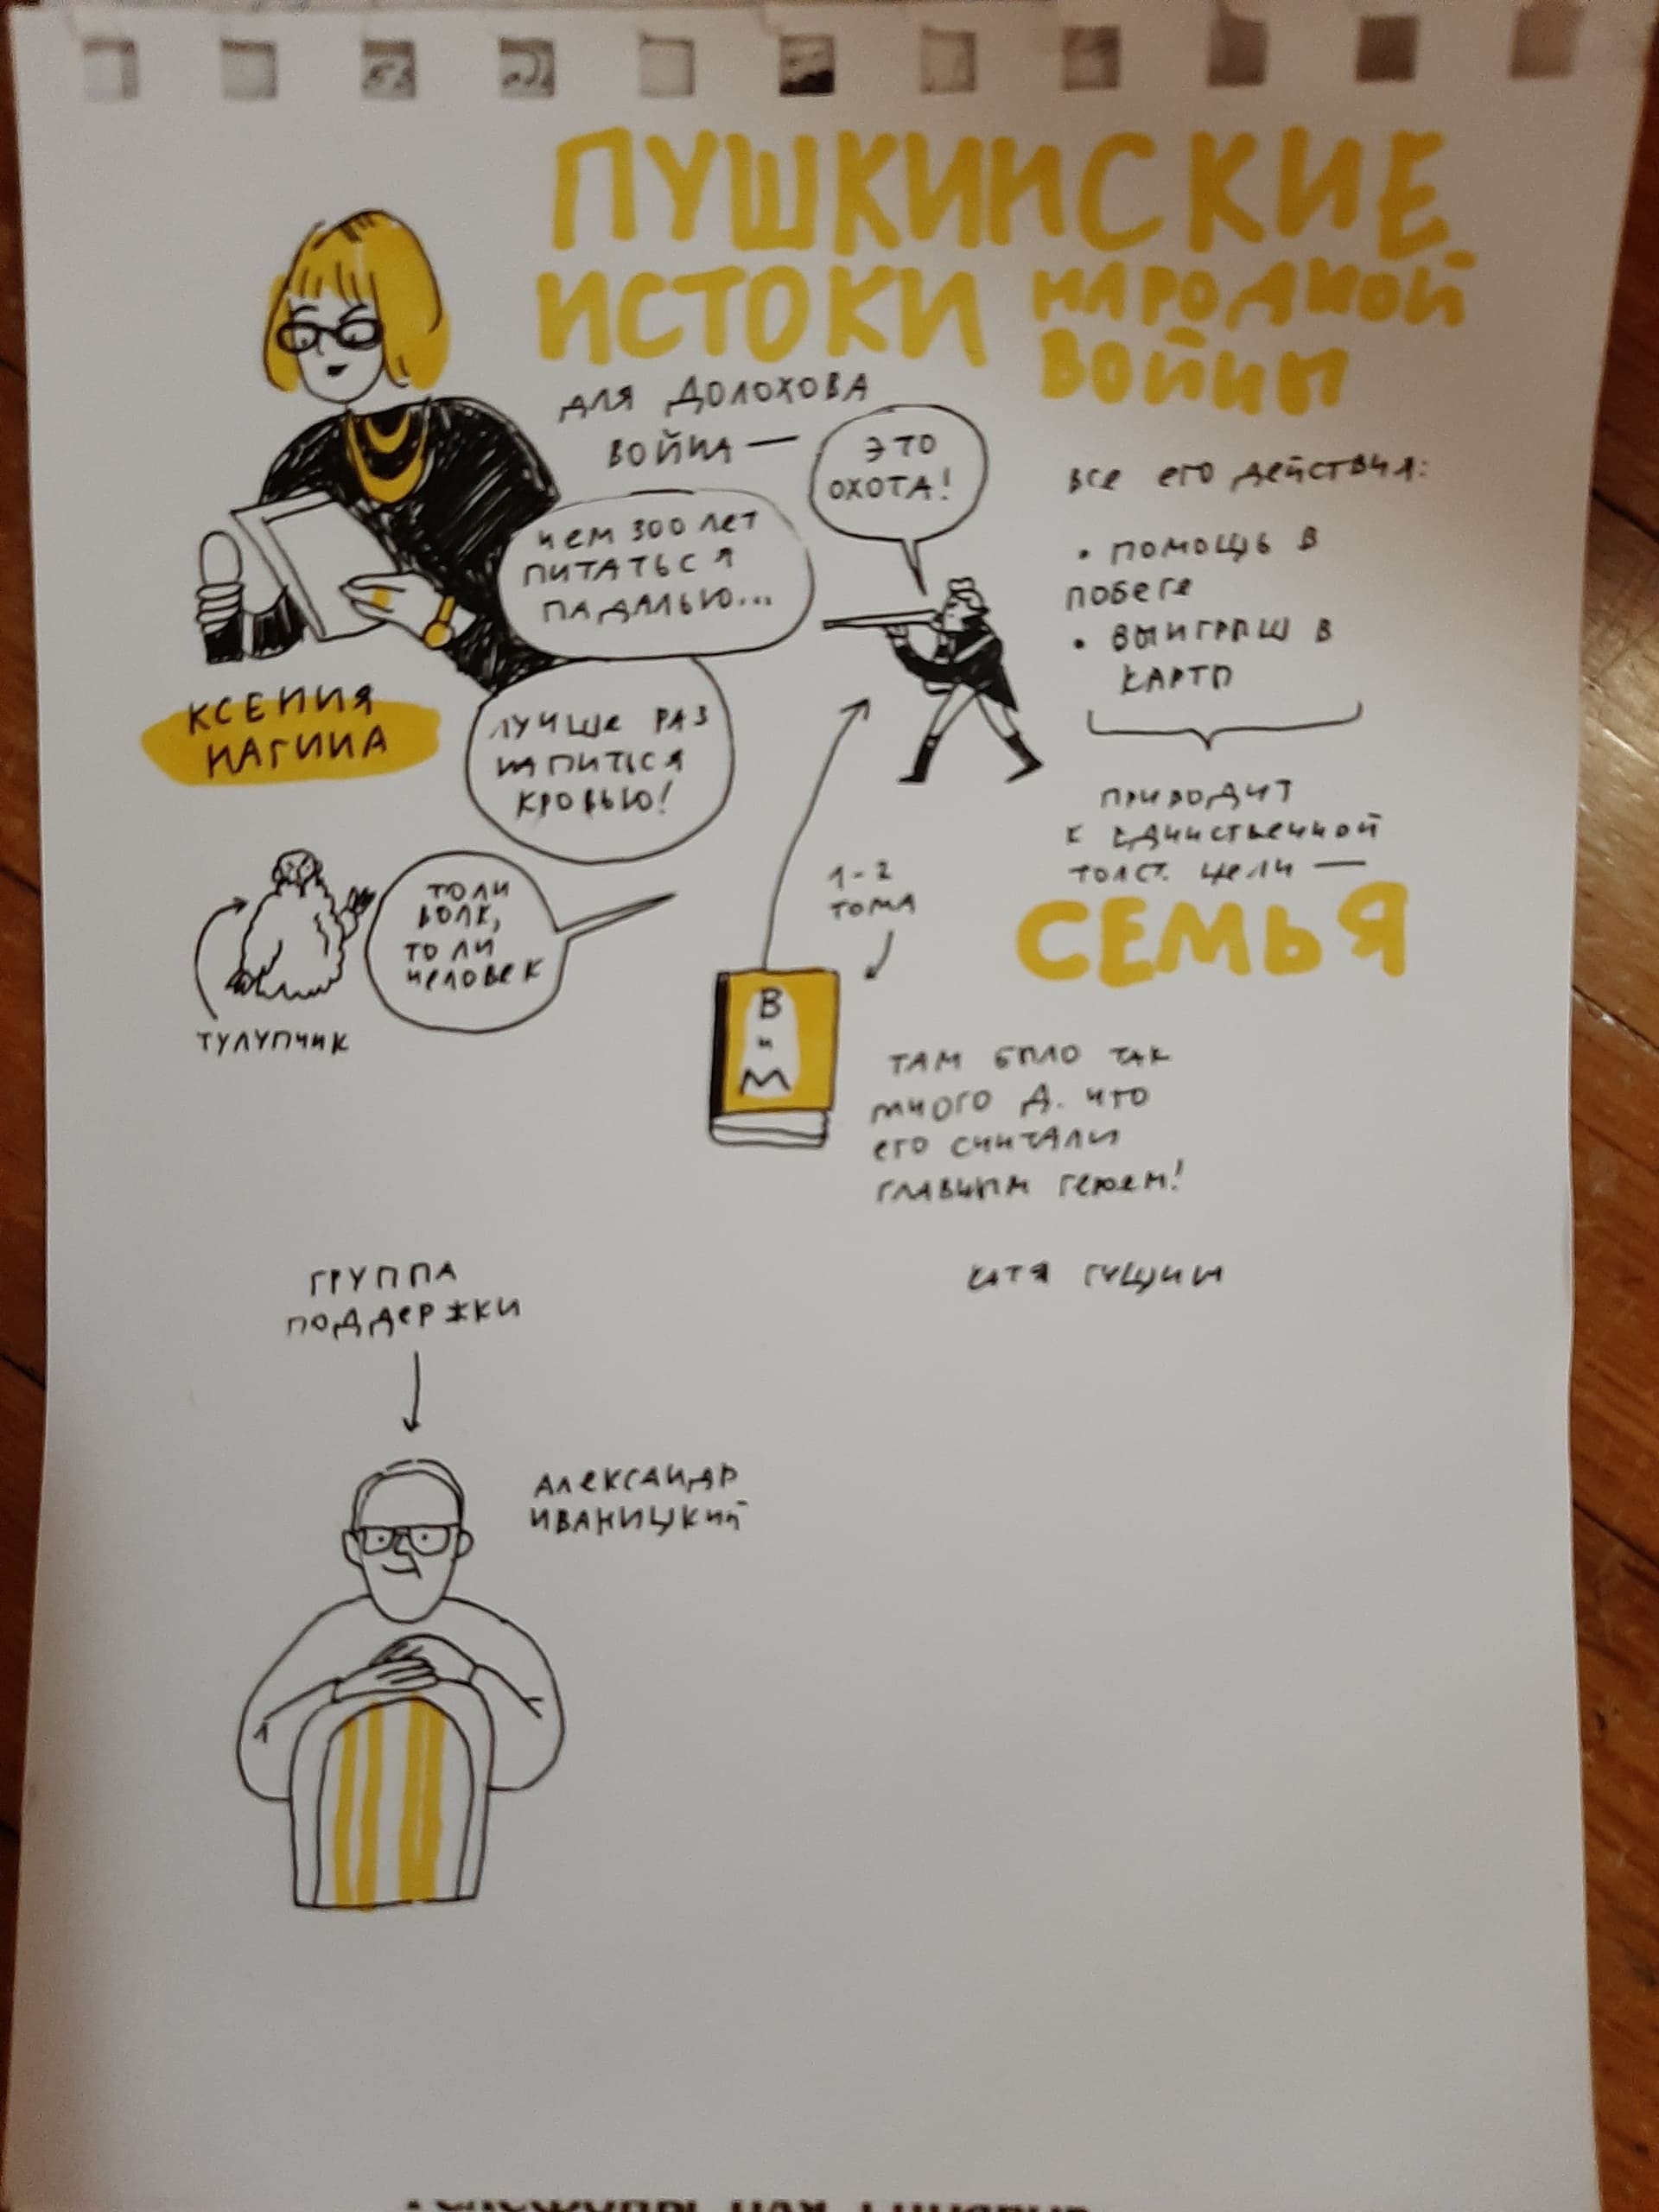 ПУШКИНСКИЕ
ИСТОКИ НАРОДНОЙ
ВОЙНЫ
ДЛЯ ДОЛОХОВА
ВОЙНА —
ЭТО
ОХОТА!
ЧЕМ 300 ЛЕТ
ПИТАТЬСЯ
ПАДАЛЬЮ...
ЛУЧШЕ РАЗ
НАПИТЬСЯ
КРОВЬЮ!
КСЕНИЯ
НАГИНА
ВСЕ ЕГО ДЕЙСТВИЯ:
• ПОМОЩЬ В
ПОБЕГЕ
• ВЫИГРЫШ В
КАРТЫ
ПРИВОДИТ
К ЕДИНСТВЕННОЙ
ТОЛСТ. ЦЕЛИ —
СЕМЬЯ
ТО ЛИ
ВОЛК,
ТО ЛИ
ЧЕЛОВЕК
ТУЛУПЧИК
1-2
ТОМА
В
и
М
ТАМ БЫЛО ТАК
МНОГО Д. ЧТО
ЕГО СЧИТАЛИ
ГЛАВНЫМ ГЕРОЕМ!
КАТЯ ГУЩИНА
ГРУППА
ПОДДЕРЖКИ
АЛЕКСАНДР
ИВАНИЦКИЙ